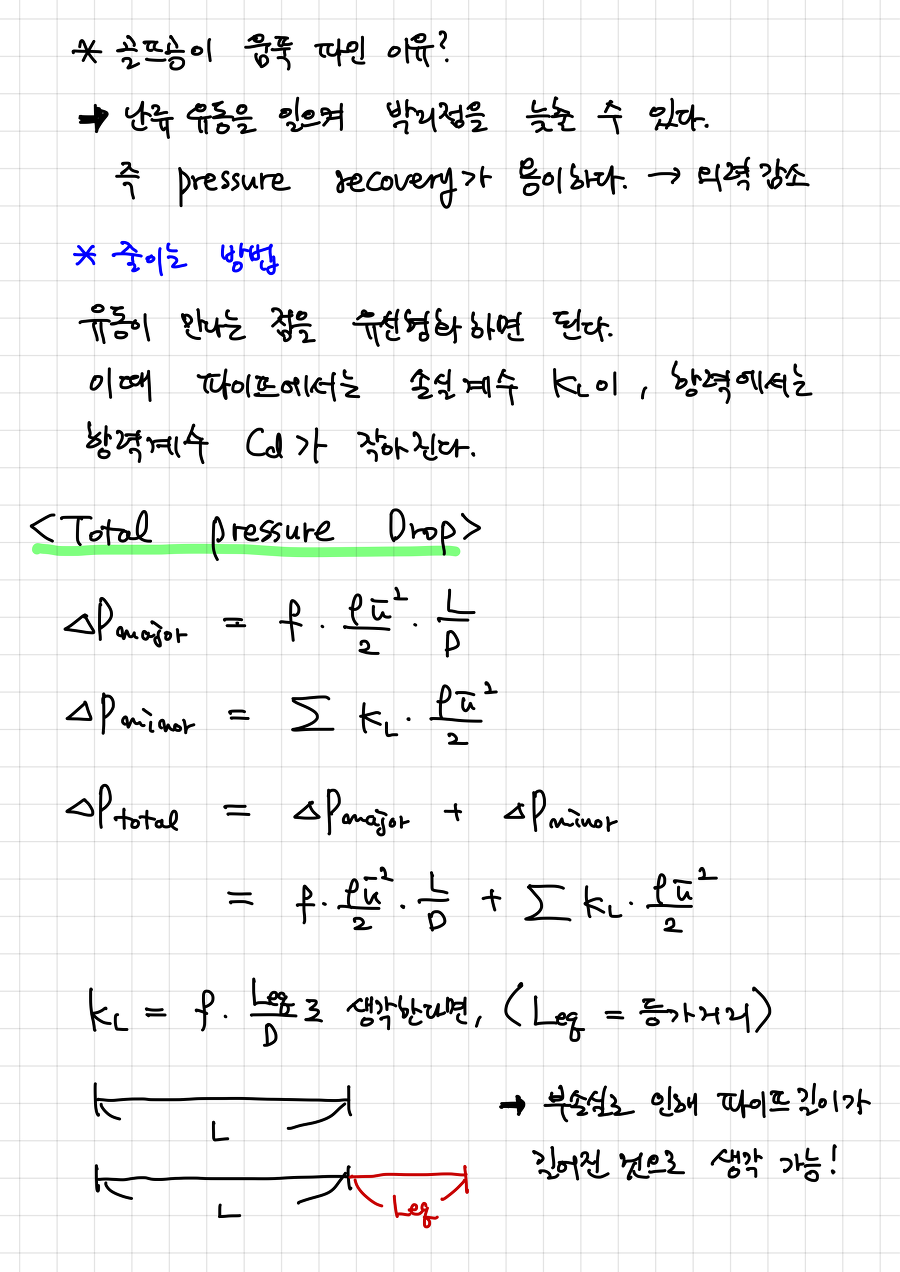 * 골프공이 움푹 파인 이유?
→ 난류 유동을 일으켜 박리점을 늦출 수 있다.
즉 pressure recovery가 용이하다. → 외력감소
* 줄이는 방법
유동이 만나는 점을 유선형화 하면 된다.
이때 파이프에서는 손실계수 KL이, 항력에서는
항력계수 Cd가 작아진다.
<Total pressure Drop>
ΔPmajor = f · ρū²/2 · L/D
ΔPminor = Σ KL · ρū²/2
ΔPtotal = ΔPmajor + ΔPminor
= f · ρū²/2 · L/D + Σ KL · ρū²/2
KL = f · Leq/D로 생각한다면, (Leq = 등가거리)
L
→ 부손실로 인해 파이프길이가
길어진 것으로 생각 가능!
L Leq